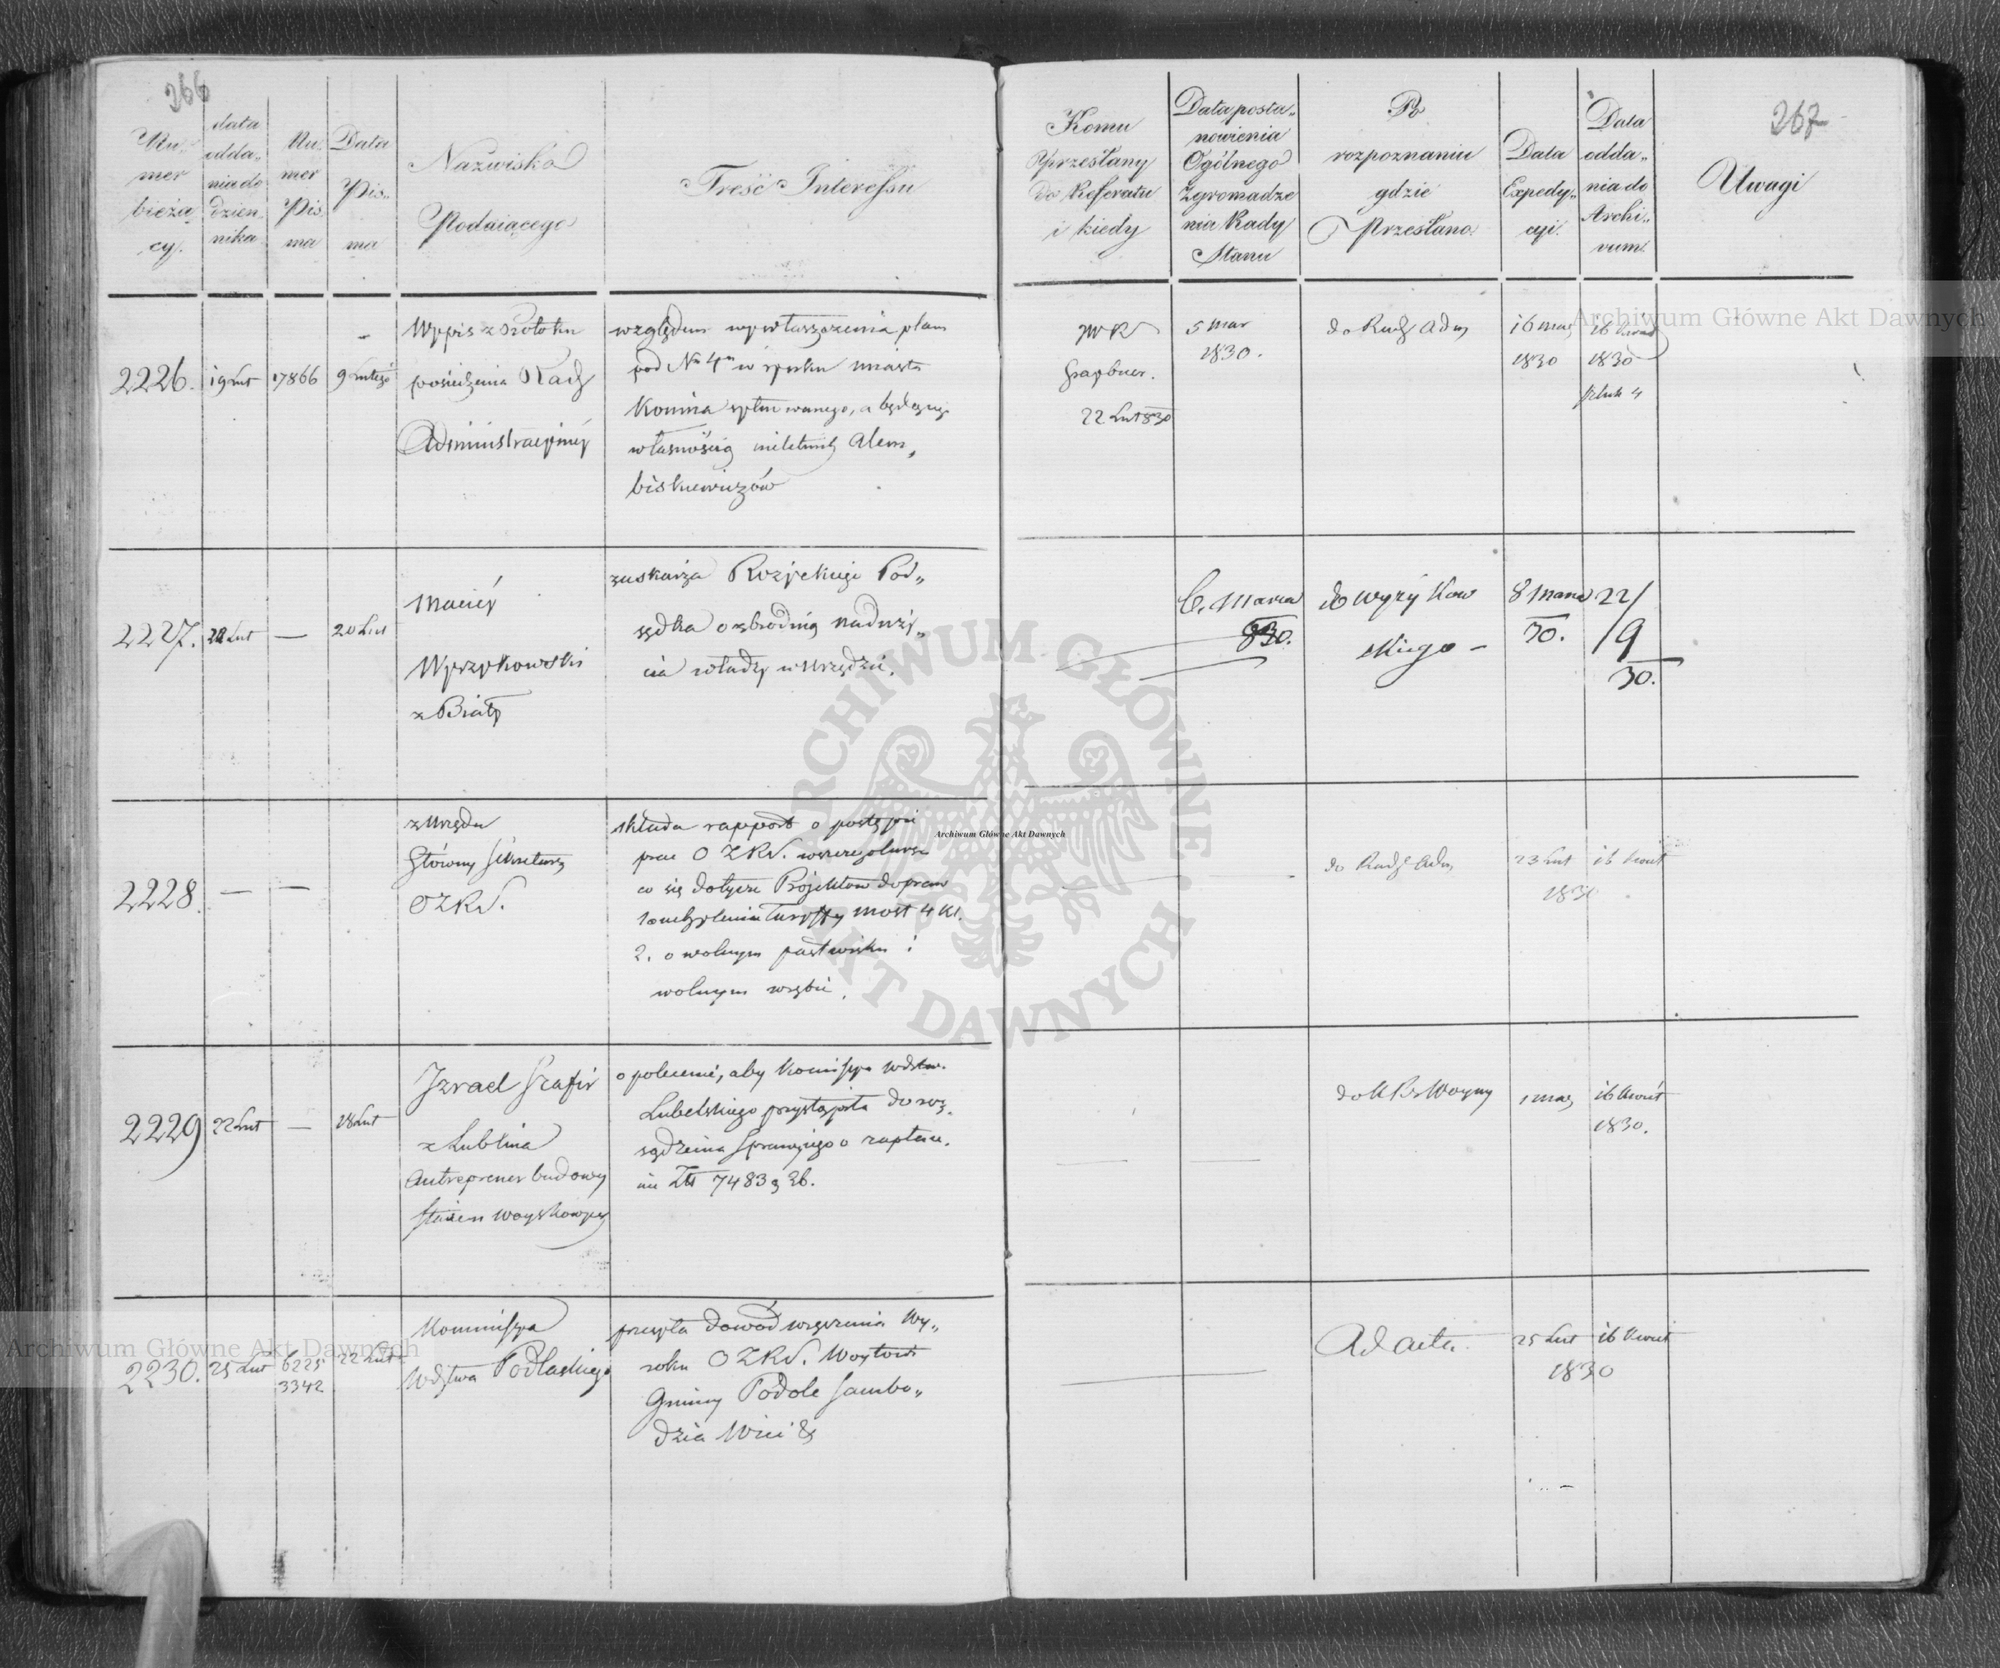 266
Nu-
mer
bieżą-
cy.
data
odda-
nia do
dzien-
nika
Nu-
mer
Pis-
ma
Data
Pis-
ma
Nazwiska
Podaiącego
Treść Interessu
2226.
19 Lut
17866
9 Lutego
Wypis z Protoku
posiedzenia Rady
Administracyjnéy
względem wywłaszczenia placu
pod No 4m w rynku miasta
Konina sytuowanego, a będącego
własnością nieletnich Alem„
biskiewiczów
2227.
22 Lut
—
20 Lut
Maciéy
Wyrzykowski
z Biały
zaskarża Rozyckiego Pod„
sędka o zbrodnią naduży„
cia władzy w Urzędzie.
2228.
—
—
z Urzędu
Główny Sekretarz
OZRS.
składa rapport o postępie
prac OZRS. w szczególnosci
co się dotycze Projektów do praw
1o uchylenia Taryffy most 4 kl.
2. o wolnym pastwisku i
wolnym wrębie.
2229
22 Lut
—
18 Lut
Izrael Szafir
z Lublina
Antreprener budowy
stáien woyskowych
o polecenie, aby Kommissya Wdztwa
Lubelskiego przystąpiła do roz„
sądzenia Sprawy jego o zapłace„
nie Złł 7483 g 26.
2230.
25 Lut
6225
3342
22 Lut
Kommissya
Wdztwa Podlaskiego
przesyła dowód wręczenia Wy„
roku OZRS. Woytowi
Gminy Podole Sambo„
dzia Wici &
267
Komu
Przesłany
do Referatu
i kiedy
Data posta„
nowienia
Ogólnego
Zgromadze
nia Rady
Stanu
Po
rozpoznaniu
gdzie
Przesłano
Data
Expedy„
cyi.
Data
odda„
nia do
Archi„
vum.
Uwagi
JWR
Graybner.
22 Lut 830
5 Mar
1830.
do Rady Adm
16 Mar
1830
16 Kwiet
1830
6. Marca
830.
do Wyrzykow
skiego –
8 Marca
30.
22/
/9
30.
do Rady Adm
23 Lut
1830
16 Kwiet
do KRz Woyny
1 Mar
16 Kwiet
1830.
Ad acta.
25 Lut
1830
16 Kwiet
Archiwum Główne Akt Dawnych
ARCHIWUM GŁÓWNE AKT DAWNYCH
Archiwum Główne Akt Dawnych
Archiwum Główne Akt Dawnych